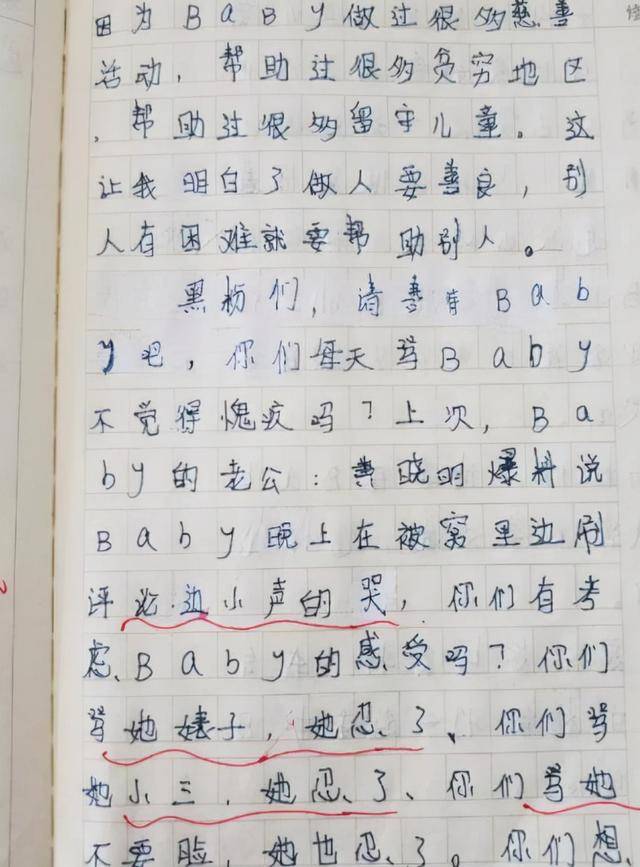 因为BaBy做过很多慈善
活动，帮助过很多贫穷地区
，帮助过很多留守儿童。这
让我明白了做人要善良，别
人有困难就要帮助别人。
黑粉们，请善待Bab
y吧，你们每天骂Baby
不觉得愧疚吗？上次，Ba
by的老公：黄晓明爆料说
Baby晚上在被窝里边刷
评论边小声的哭，你们有考
虑Baby的感受吗？你们
骂她婊子，她忍了、你们骂
她小三，她忍了、你们骂她
不要脸，她也忍了。你们想